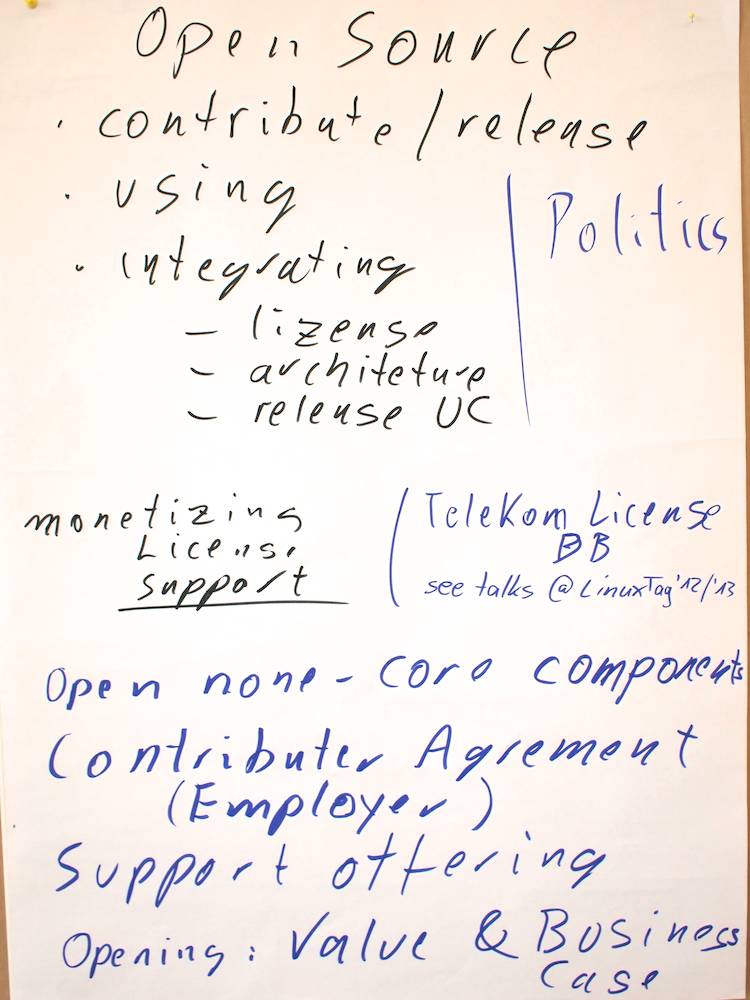 Open Source
· contribute/release
· using
· integrating
– lizense
– architeture
– release UC
| Politics
monetizing
License
support
| Telekom License
DB
see talks @LinuxTag'12/'13
Open none-core components
Contributer Agrement
(Employer)
Support offering
Opening: Value & Business
Case